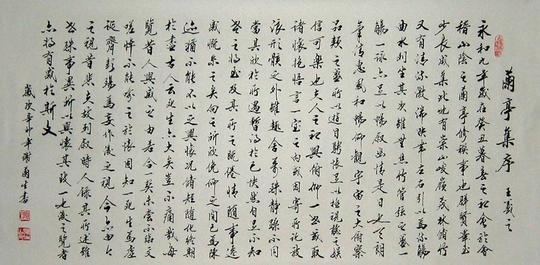 蘭亭集序 王羲之
永和九年歲在癸丑暮春之初會於會
稽山陰之蘭亭修稧事也群賢畢至
少長咸集此地有崇山峻嶺茂林脩竹
又有清流激湍映帶左右引以為流觴
曲水列坐其次雖無絲竹管弦之盛一
觴一詠亦足以暢敘幽情是日也天朗
氣清惠風和暢仰觀宇宙之大俯察
品類之盛所以遊目騁懷足以極視聽之娛
信可樂也夫人之相與俯仰一世或取
諸懷抱悟言一室之內或因寄所託放
浪形骸之外雖趣舍萬殊靜躁不同
當其欣於所遇暫得於己快然自足不知
老之將至及其所之既倦情隨事遷
感慨係之矣向之所欣俯仰之間已為陳
迹猶不能不以之興懷況脩短隨化終期
於盡古人云死生亦大矣豈不痛哉每
覽昔人興感之由若合一契未嘗不臨文
嗟悼不能喻之於懷固知一死生為虛
誕齊彭殤為妄作後之視今亦由今
之視昔悲夫故列敘時人錄其所述雖
世殊事異所以興懷其致一也後之覽者
亦將有感於斯文
歲次辛卯年